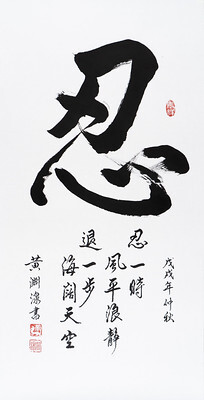 忍
忍一時
風平浪靜
退一步
海闊天空
戊戌年仲秋
黃淵濠書